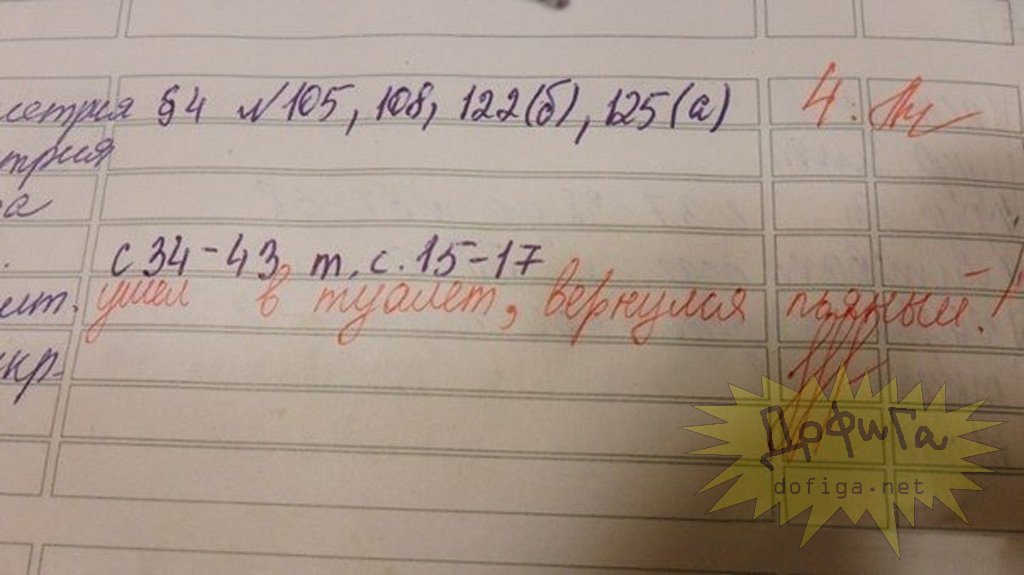 §4 №105, 108, 122(б), 125(а) 4.
с 34-43, т. с. 15-17
ушел в туалет, вернулся пьяный!
ДоФиГа
dofiga.net